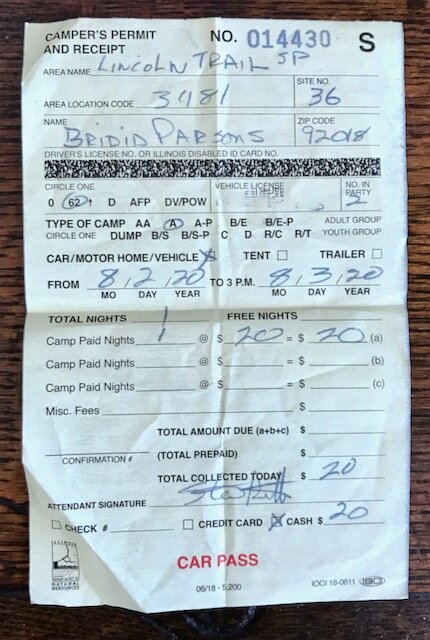 CAMPER'S PERMIT AND RECEIPT NO. 014430 S
AREA NAME LINCOLN TRAIL SP
AREA LOCATION CODE 3481 SITE NO. 36
NAME BRIDID PARSONS ZIP CODE 92018
DRIVER'S LICENSE NO. OR ILLINOIS DISABLED ID CARD NO.
CIRCLE ONE VEHICLE LICENSE NO. IN PARTY
0 62↑ D AFP DV/POW 2
TYPE OF CAMP AA A A-P B/E B/E-P ADULT GROUP
CIRCLE ONE DUMP B/S B/S-P C D R/C R/T YOUTH GROUP
CAR/MOTOR HOME/VEHICLE X TENT ☐ TRAILER ☐
FROM 8 2 20 TO 3 P.M. 8 3 20
MO DAY YEAR MO DAY YEAR
TOTAL NIGHTS 1 FREE NIGHTS
Camp Paid Nights @ $ 20 = $ 20 (a)
Camp Paid Nights @ $ = $ (b)
Camp Paid Nights @ $ = $ (c)
Misc. Fees $
TOTAL AMOUNT DUE (a+b+c) $
CONFIRMATION # (TOTAL PREPAID) $
TOTAL COLLECTED TODAY $ 20
ATTENDANT SIGNATURE
☐ CHECK # ☐ CREDIT CARD ☒ CASH $ 20
CAR PASS
ILLINOIS
DEPARTMENT OF
NATURAL
RESOURCES
06/18 - 5,200 IOCI 18-0611